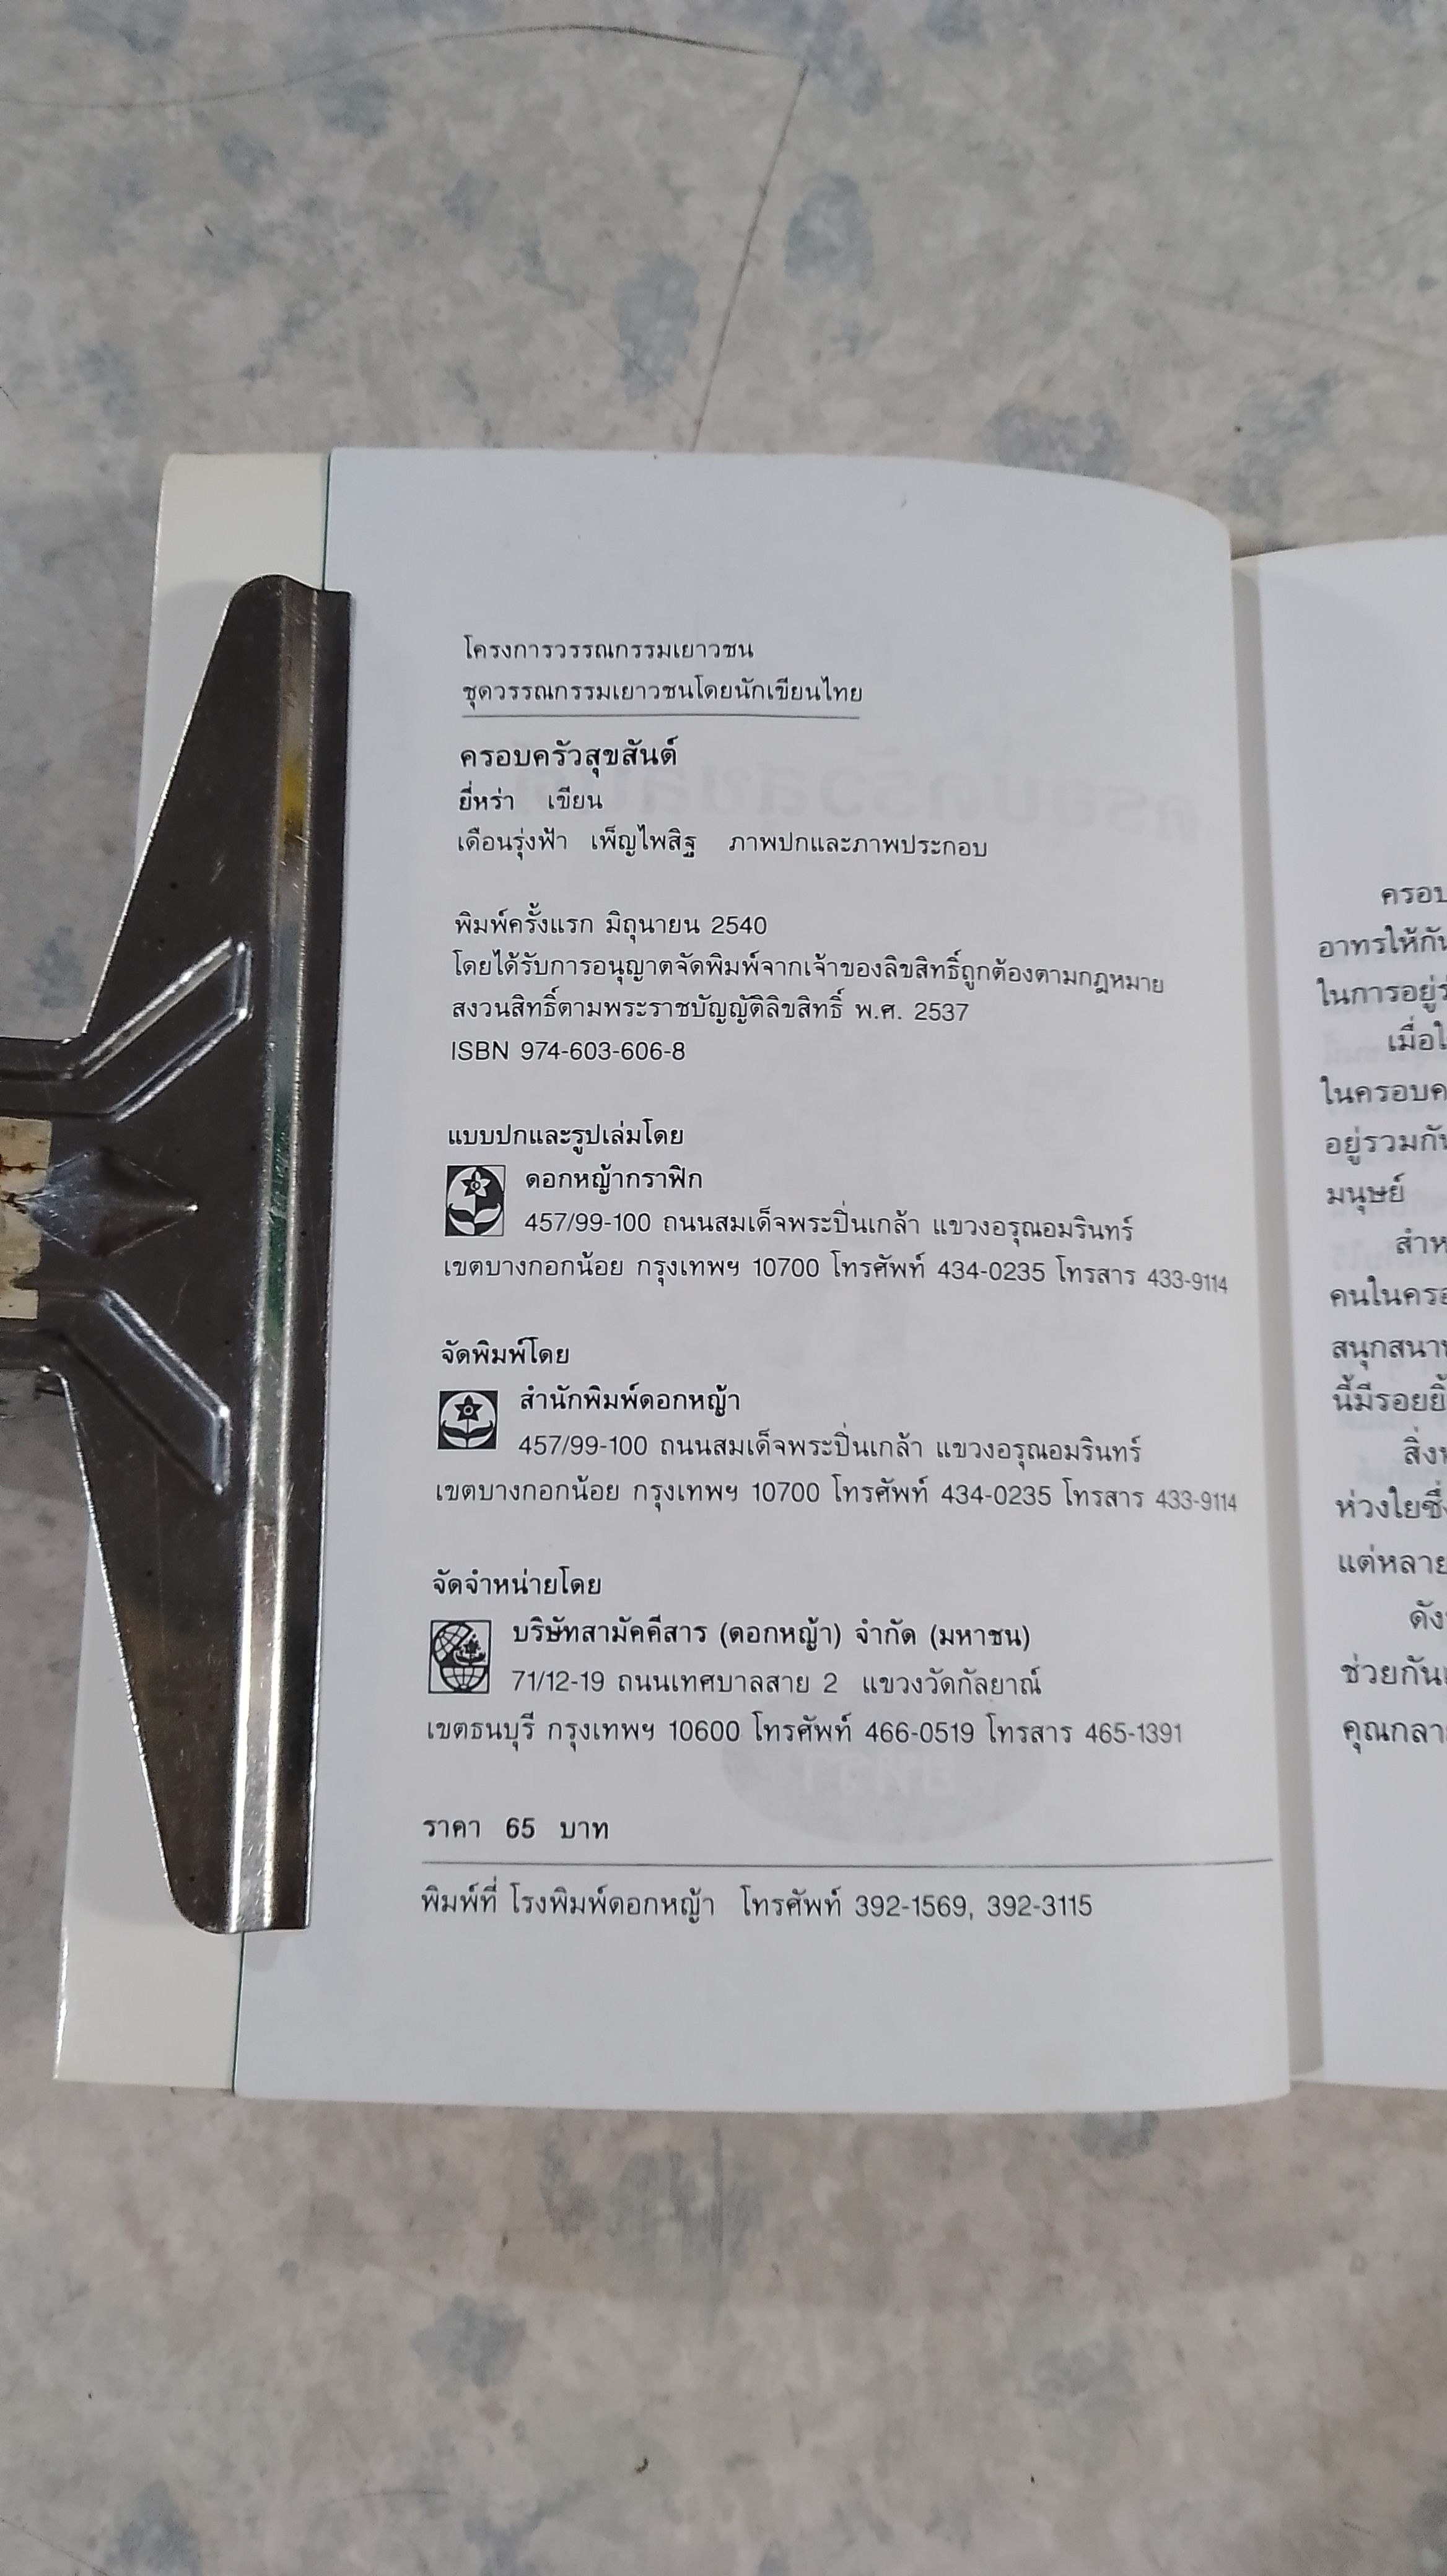 โครงการวรรณกรรมเยาวชน
ชุดวรรณกรรมเยาวชนโดยนักเขียนไทย
ครอบครัวสุขสันต์
ยี่หร่า เขียน
เดือนรุ่งฟ้า เพ็ญไพสิฐ ภาพปกและภาพประกอบ
พิมพ์ครั้งแรก มิถุนายน 2540
โดยได้รับการอนุญาตจัดพิมพ์จากเจ้าของลิขสิทธิ์ถูกต้องตามกฎหมาย
สงวนสิทธิ์ตามพระราชบัญญัติลิขสิทธิ์ พ.ศ. 2537
ISBN 974-603-606-8
แบบปกและรูปเล่มโดย
ดอกหญ้ากราฟิก
457/99-100 ถนนสมเด็จพระปิ่นเกล้า แขวงอรุณอมรินทร์
เขตบางกอกน้อย กรุงเทพฯ 10700 โทรศัพท์ 434-0235 โทรสาร 433-9114
จัดพิมพ์โดย
สำนักพิมพ์ดอกหญ้า
457/99-100 ถนนสมเด็จพระปิ่นเกล้า แขวงอรุณอมรินทร์
เขตบางกอกน้อย กรุงเทพฯ 10700 โทรศัพท์ 434-0235 โทรสาร 433-9114
จัดจำหน่ายโดย
บริษัทสามัคคีสาร (ดอกหญ้า) จำกัด (มหาชน)
71/12-19 ถนนเทศบาลสาย 2 แขวงวัดกัลยาณ์
เขตธนบุรี กรุงเทพฯ 10600 โทรศัพท์ 466-0519 โทรสาร 465-1391
ราคา 65 บาท
พิมพ์ที่ โรงพิมพ์ดอกหญ้า โทรศัพท์ 392-1569, 392-3115
ครอบ
อาทรให้กัน
ในการอยู่ร
เมื่อใ
ในครอบค
อยู่รวมกัน
มนุษย์
สำห
คนในครอ
สนุกสนา
นี้มีรอยยิ้
สิ่ง
ห่วงใยซึ่ง
แต่หลาย
ดัง
ช่วยกัน
คุณกลา